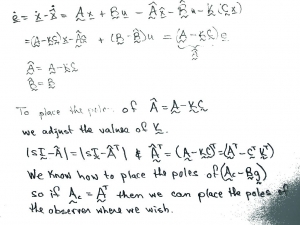 ė = ẋ - x̂̇ = Ax + Bu - Âx̂ - B̂u - K(Cx)
= (A - KC)x - Âx̂ + (B - B̂)u = (A - KC)e
Â
Â = A - KC
B̂ = B
To place the poles of Â = A - KC
we adjust the values of K.
|sI - Â| = |sI - Âᵀ| & Âᵀ = (A - KC)ᵀ = (Aᵀ - CᵀKᵀ)
We know how to place the poles of (Ac - Bg)
so if Ac = Aᵀ then we can place the poles of
the observer where we wish.